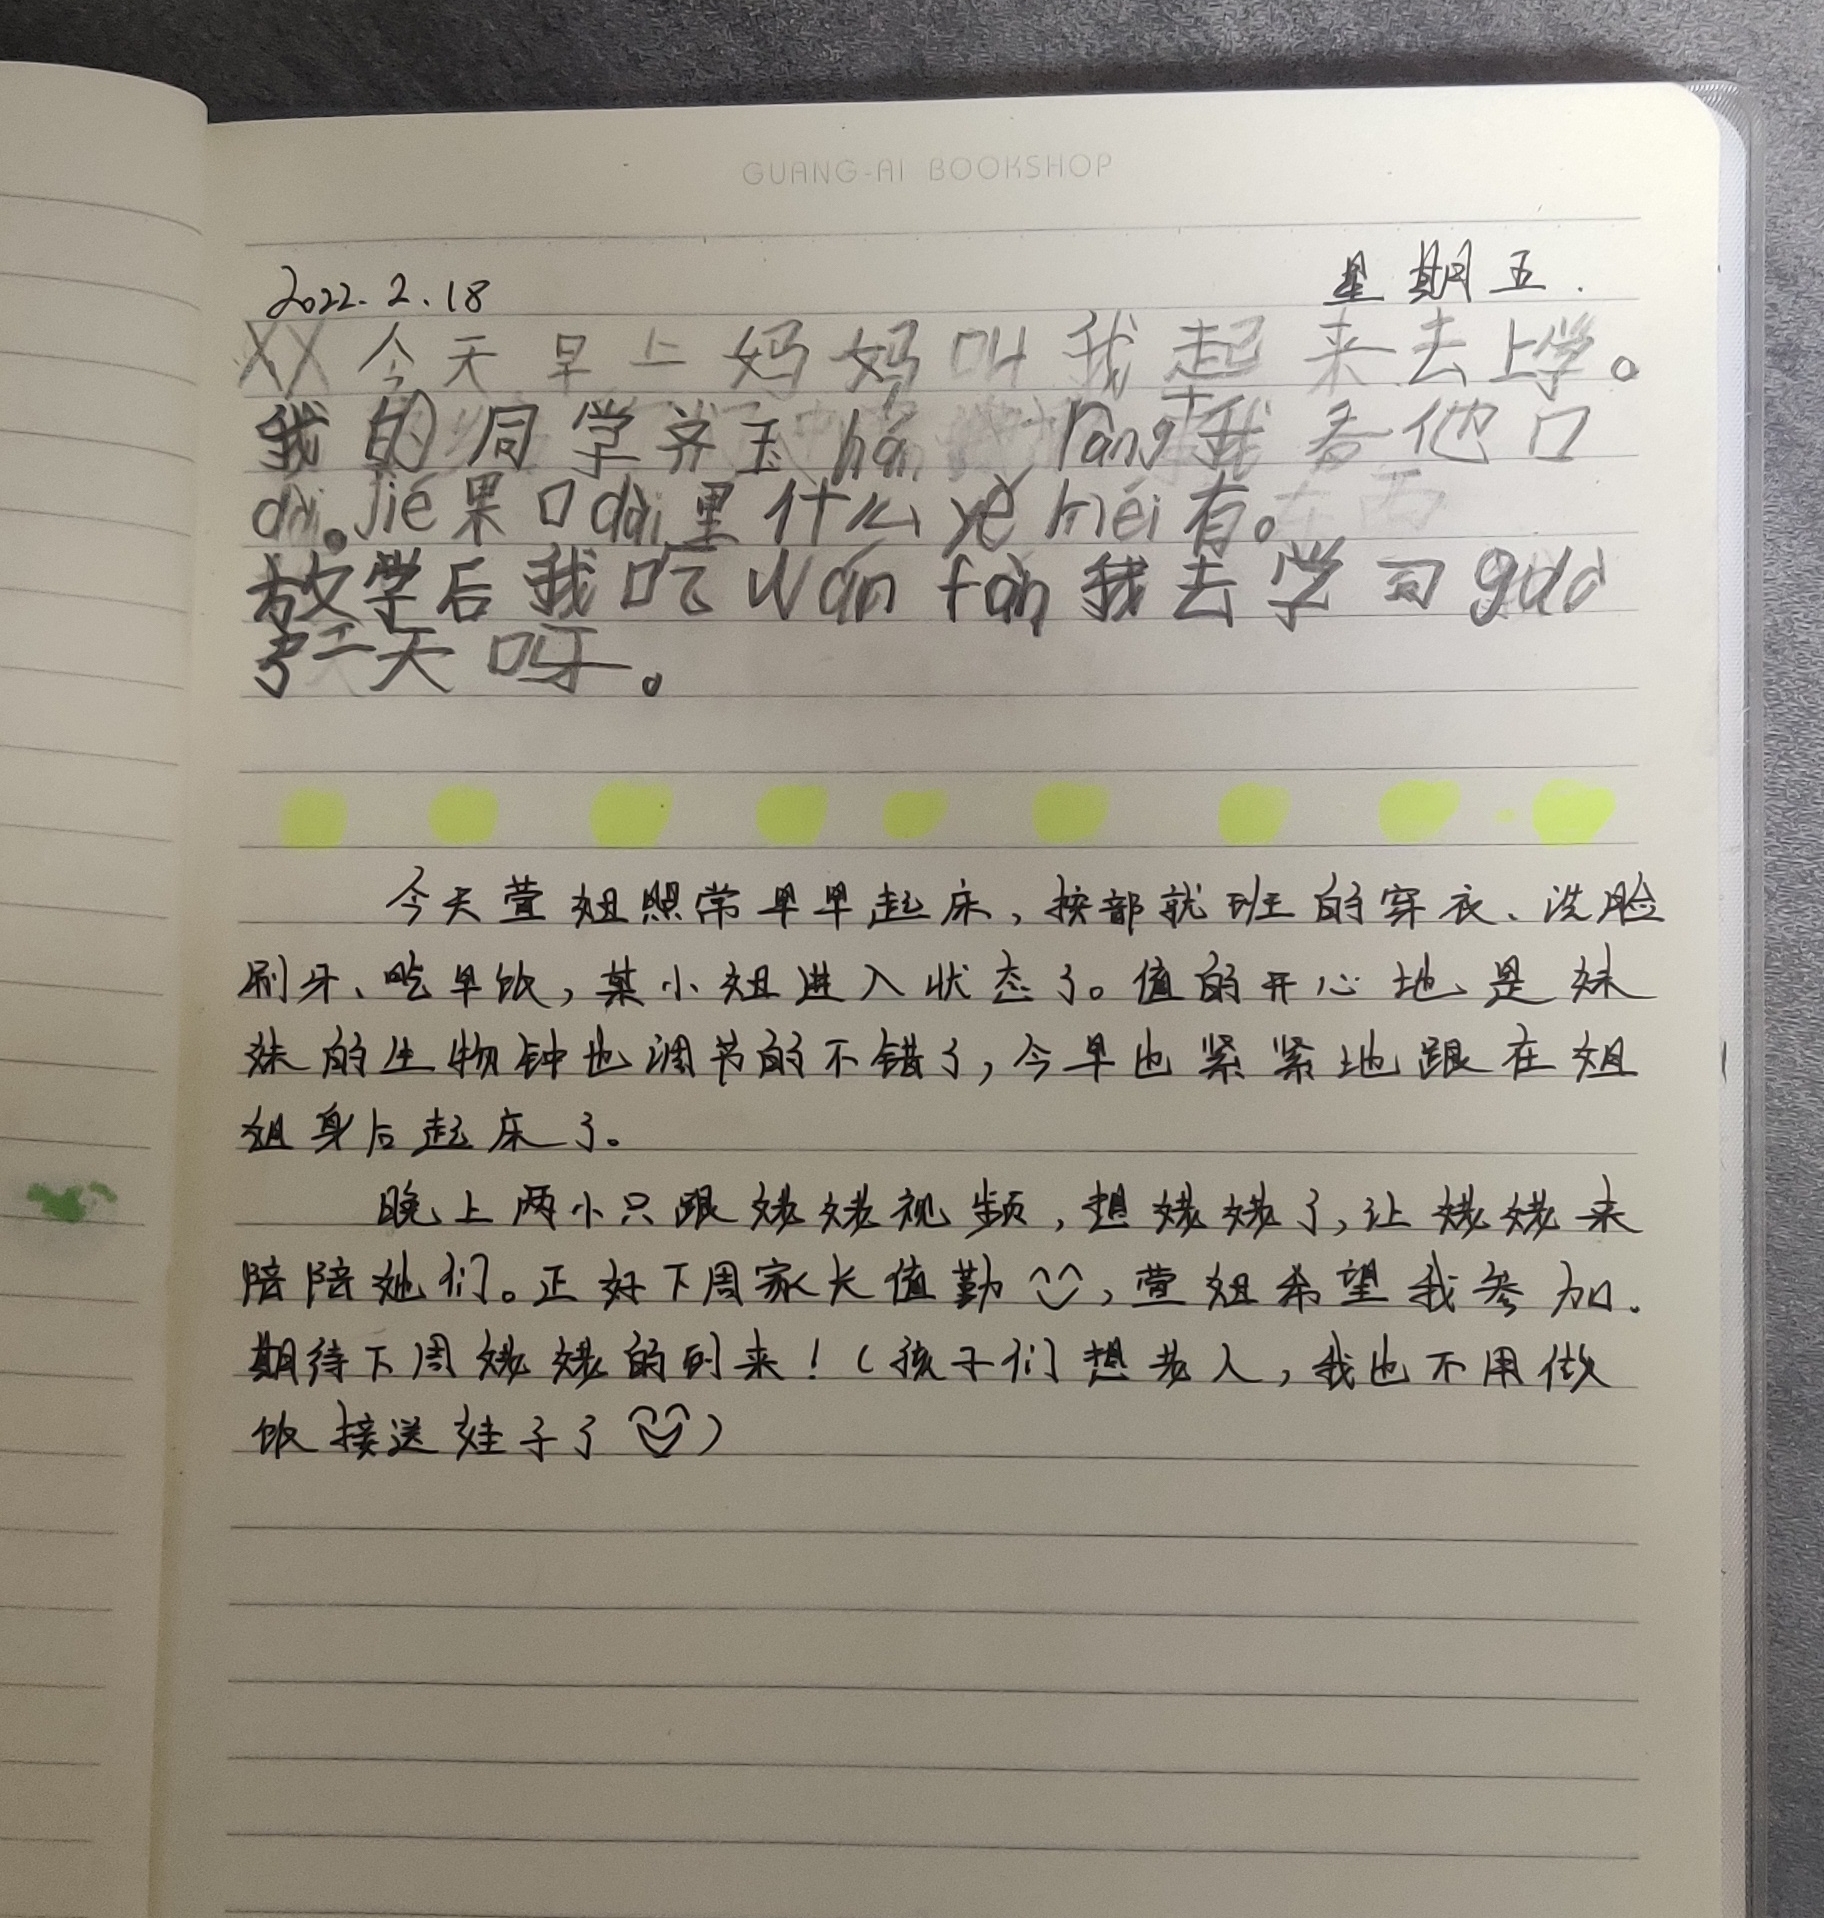 GUANG-AI BOOKSHOP
2022.2.18 星期五.
XX 今天早上妈妈叫我起来去上学。
我的同学齐玉hán ràng我看他口
dài。jié果口dài里什么yě méi有。
放学后我吃wán fàn我去学习gāo
了一天呀。
今天萱姐照常早早起床，按部就班的穿衣、洗脸
刷牙、吃早饭，某小姐进入状态了。值的开心地是妹
妹的生物钟也调节的不错了，今早也紧紧地跟在姐
姐身后起床了。
晚上两小只跟姥姥视频，想姥姥了，让姥姥来
陪陪她们。正好下周家长值勤，萱姐希望我参加.
期待下周姥姥的到来！（孩子们想老人，我也不用做
饭接送娃子了）